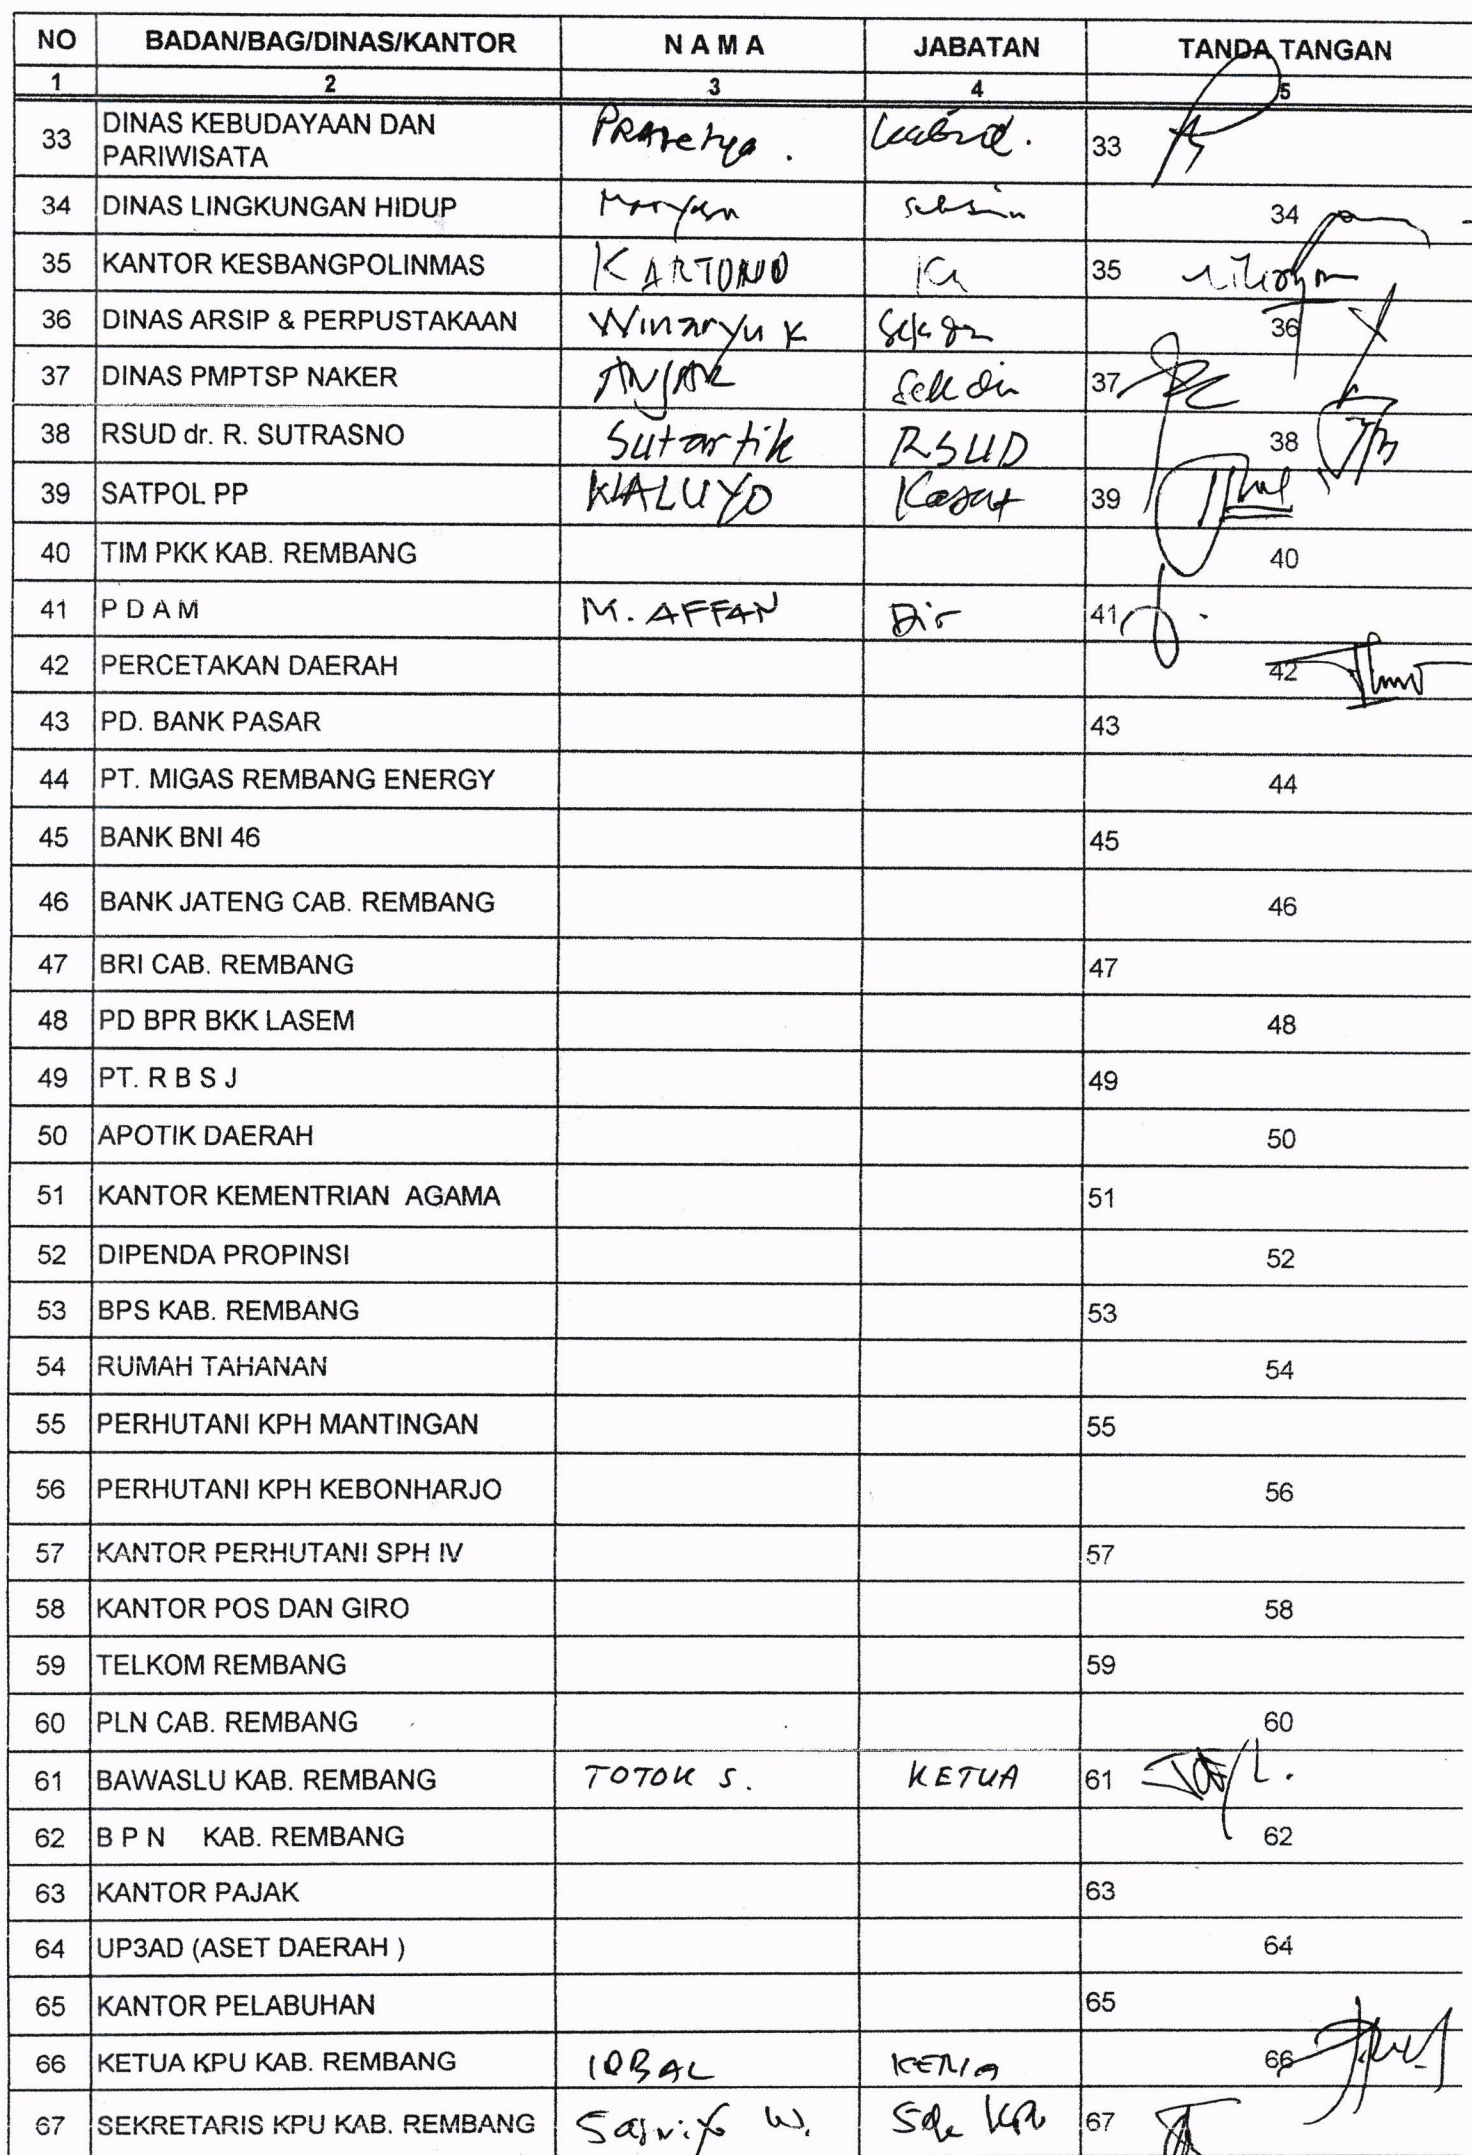 NO BADAN/BAG/DINAS/KANTOR N A M A JABATAN TANDA TANGAN
1 2 3 4 5
33 DINAS KEBUDAYAAN DAN PARIWISATA PRAsetya . kabid. 33
34 DINAS LINGKUNGAN HIDUP Maryan 34
35 KANTOR KESBANGPOLINMAS KARTONO Ka 35
36 DINAS ARSIP & PERPUSTAKAAN Winaryu K 36
37 DINAS PMPTSP NAKER ANJAR Sekdin 37
38 RSUD dr. R. SUTRASNO Sutartik RSUD 38
39 SATPOL PP WALUYO Kasat 39
40 TIM PKK KAB. REMBANG 40
41 P D A M M. AFFAN Dir 41
42 PERCETAKAN DAERAH 42
43 PD. BANK PASAR 43
44 PT. MIGAS REMBANG ENERGY 44
45 BANK BNI 46 45
46 BANK JATENG CAB. REMBANG 46
47 BRI CAB. REMBANG 47
48 PD BPR BKK LASEM 48
49 PT. R B S J 49
50 APOTIK DAERAH 50
51 KANTOR KEMENTRIAN AGAMA 51
52 DIPENDA PROPINSI 52
53 BPS KAB. REMBANG 53
54 RUMAH TAHANAN 54
55 PERHUTANI KPH MANTINGAN 55
56 PERHUTANI KPH KEBONHARJO 56
57 KANTOR PERHUTANI SPH IV 57
58 KANTOR POS DAN GIRO 58
59 TELKOM REMBANG 59
60 PLN CAB. REMBANG 60
61 BAWASLU KAB. REMBANG TOTOK S. KETUA 61
62 B P N KAB. REMBANG 62
63 KANTOR PAJAK 63
64 UP3AD (ASET DAERAH ) 64
65 KANTOR PELABUHAN 65
66 KETUA KPU KAB. REMBANG IQBAL KETUA 66
67 SEKRETARIS KPU KAB. REMBANG W. Sek KPU 67